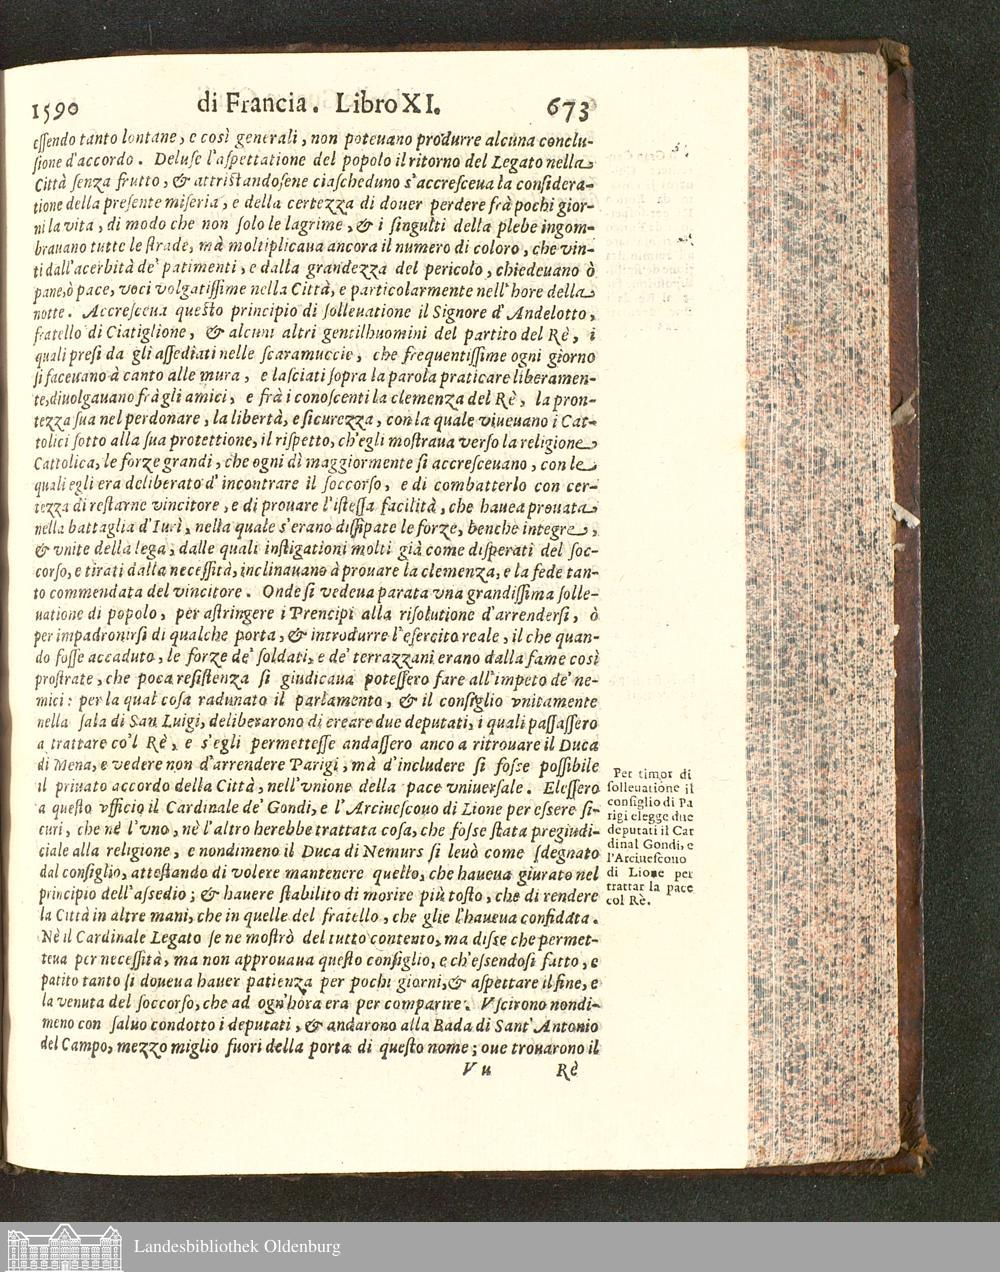 1590 di Francia. Libro XI. 673
eſſendo tanto lontane, e così generali, non poteuano produrre alcuna conclu-
ſione d'accordo. Deluſe l'aſpettatione del popolo il ritorno del Legato nella
Città ſenza frutto, & attriſtandoſene ciaſcheduno s'accreſceua la conſidera-
tione della preſente miſeria, e della certezza di douer perdere frà pochi gior-
ni la vita, di modo che non ſolo le lagrime, & i ſingulti della plebe ingom-
brauano tutte le ſtrade, mà moltiplicaua ancora il numero di coloro, che vin-
ti dall'acerbità de' patimenti, e dalla grandezza del pericolo, chiedeuano ò
pane, ò pace, voci volgatiſſime nella Città, e particolarmente nell'hore della
notte. Accreſceua queſto principio di ſolleuatione il Signore d'Andelotto,
fratello di Ciatiglione, & alcuni altri gentilhuomini del partito del Rè, i
quali preſi da gli aſſediati nelle ſcaramuccie, che frequentiſſime ogni giorno
ſi faceuano à canto alle mura, e laſciati ſopra la parola praticare liberamen-
te, diuolgauano frà gli amici, e frà i conoſcenti la clemenza del Rè, la pron-
tezza ſua nel perdonare, la libertà, e ſicurezza, con la quale viueuano i Cat-
tolici ſotto alla ſua protettione, il riſpetto, ch'egli moſtraua verſo la religione
Cattolica, le forze grandi, che ogni dì maggiormente ſi accreſceuano, con le
quali egli era deliberato d'incontrare il ſoccorſo, e di combatterlo con cer-
tezza di reſtarne vincitore, e di prouare l'iſteſſa facilità, che hauea prouata
nella battaglia d'Iurì, nella quale s'erano diſſipate le forze, benche integre,
& vnite della lega, dalle quali inſtigationi molti già come diſperati del ſoc-
corſo, e tirati dalla neceſſità, inclinauano à prouare la clemenza, e la fede tan-
to commendata del vincitore. Onde ſi vedeua parata vna grandiſſima ſolle-
uatione di popolo, per aſtringere i Prencipi alla riſolutione d'arrenderſi, ò
per impadronirſi di qualche porta, & introdurre l'eſercito reale, il che quan-
do foſſe accaduto, le forze de' ſoldati, e de' terrazzani erano dalla fame così
proſtrate, che poca reſiſtenza ſi giudicaua poteſſero fare all'impeto de' ne-
mici: per la qual coſa radunato il parlamento, & il conſiglio vnitamente
nella ſala di San Luigi, deliberarono di creare due deputati, i quali paſſaſſero
a trattare co'l Rè, e s'egli permetteſſe andaſſero anco a ritrouare il Duca
di Mena, e vedere non d'arrendere Parigi, mà d'includere ſi foſse poſſibile
il priuato accordo della Città, nell'vnione della pace vniuerſale. Eleſſero
a queſto vfficio il Cardinale de' Gondi, e l'Arciueſcouo di Lione per eſsere ſi-
curi, che nè l'vno, nè l'altro herebbe trattata coſa, che foſse ſtata pregiudi-
ciale alla religione, e nondimeno il Duca di Nemurs ſi leuò come ſdegnato
dal conſiglio, atteſtando di volere mantenere quello, che haueua giurato nel
principio dell'aſsedio; & hauere ſtabilito di morire più toſto, che di rendere
la Città in altre mani, che in quelle del fratello, che glie l'haueua confidata.
Nè il Cardinale Legato ſe ne moſtrò del tutto contento, ma diſse che permet-
teua per neceſſità, ma non approuaua queſto conſiglio, e ch'eſsendoſi fatto, e
patito tanto ſi doueua hauer patienza per pochi giorni, & aſpettare il fine, e
la venuta del ſoccorſo, che ad ogn'hora era per comparire. Vſcirono nondi-
meno con ſaluo condotto i deputati, & andarono alla Bada di Sant'Antonio
del Campo, mezzo miglio fuori della porta di queſto nome; oue trouarono il
V u Rè
Per timor di
ſolleuatione il
conſiglio di Pa
rigi elegge due
deputati il Car
dinal Gondi, e
l'Arciueſcouo
di Lione per
trattar la pace
col Rè.
Landesbibliothek Oldenburg